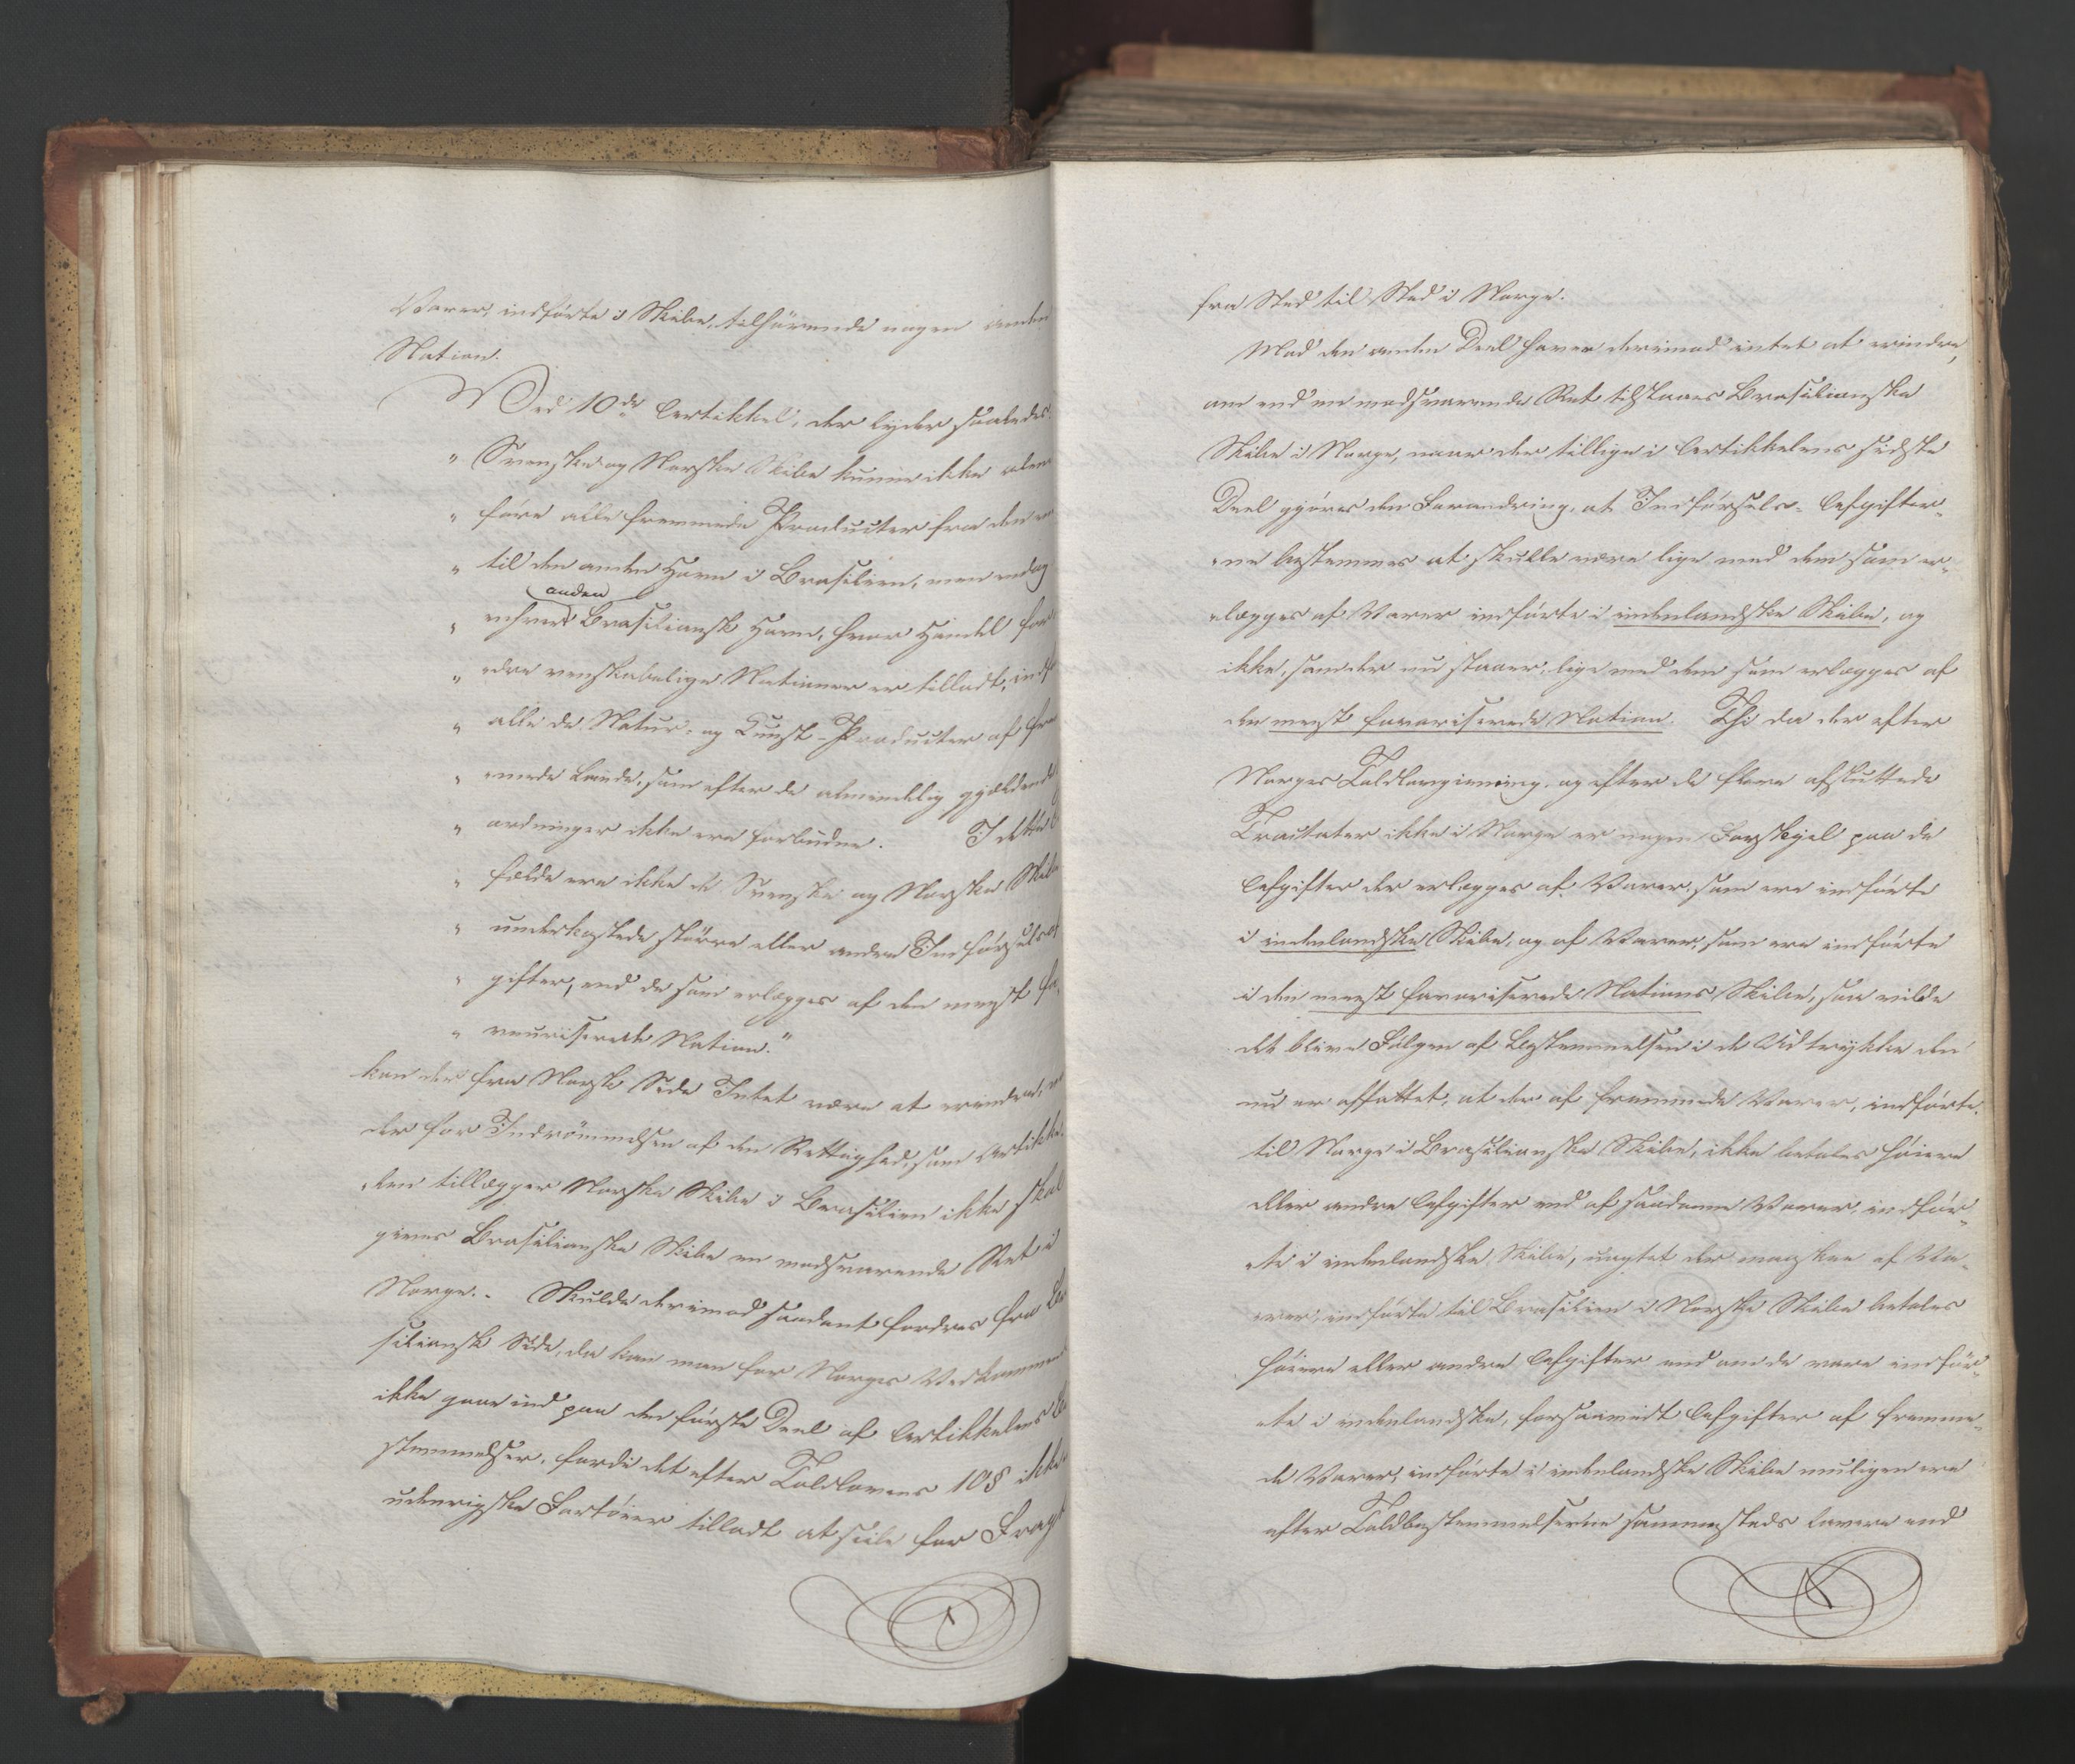 Varer, indførte i Skibe, tilhørende nogen anden
Nation.
Ved 10de Artikkel, der lyder saaledes:
" Svenske og Norske Skibe kunne ikke alene
" føre alle fremmede Producter fra den ene
" til den anden Havn i Brasilien, men endog
anden
" enhver Brasiliansk Havn, hvor Handel for
" andre venskabelige Nationer er tilladt, indf
" alle de Natur- og Kunst-Producter af fre
" mede Lande, som efter de almindelig gjældende
" ordninger ikke ere forbudne. I dette
" fælde ere ikke de Svenske og Norske Skibe
" underkastede større eller andre Indførselsaf
" gifter, end de som erlægges af den meest fa
" vouriserede Nation."
kan der fra Norsk Side Intet være at erindre,
der for Indrømmelsen af den Rettighed, som Artikke
len tillægger Norske Skibe i Brasilien ikke skal
gives Brasilianske Skibe en modsvarende Ret i
Norge. - Skulde derimod saadant fordres fra Bra
siliansk Side, da kan man for Norges Vedkommende
ikke gaae ind paa den første Deel af Artikkelens Be
stemmelser, fordi det efter Toldlovens 10§ ikke
udenrigske Fartøier tilladt at seile for Fragt
fra Sted til Sted i Norge.
Mod den anden Deel haves derimod intet at erindre,
om end en modsvarende Ret tilstaaes Brasilianske
Skibe i Norge, naar der tillige i Artikkelens sidste
Deel gjøres den Forandring, at Indførsels-Afgifter-
ne bestemmes at skulle være lige med dem som er-
lægges af Varer indførte i indenlandske Skibe, og
ikke, som der nu staaer, lige med dem som erlægges af
den meest favoriserede Nation. Thi da der efter
Norges Toldlovgivning, og efter de flere afsluttede
Tractater ikke i Norge er nogen Forskjel paa de
Afgifter der erlægges af Varer, som ere indførte
i indenlandske Skibe, og af Varer, som ere indførte
i den meest favoriserede Nations Skibe, saa vilde
det blive Følgen af Bestemmelsen i de Udtrykke den
nu er affattet, at der af fremmede Varer, indførte
til Norge i Brasilianske Skibe, ikke betales høiere
eller andre Afgifter end af saadanne Varer, indfør-
te i indenlandske Skibe, uagtet der maaskee af Va-
rer, indførte til Brasilien i Norske Skibe betales
høiere eller andre Afgifter end om de vare indfør-
te i indenlandske, forsaavidt Afgifter af fremme-
de Varer, indførte i indenlandske Skibe muligen ere
efter Toldbestemmelserne sammesteds lavere end